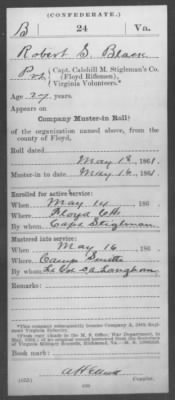 (CONFEDERATE.)
B 24 Va.
Robert S. Black
Pvt. Capt. Calohill M. Stigleman's Co.
(Floyd Riflemen),
Virginia Volunteers.*
Age 27 years.
Appears on
Company Muster-in Roll
of the organization named above, from the
county of Floyd,
Roll dated
May 18, 1861.
Muster-in to date May 16, 1861.
Enrolled for active service:
When May 14, 186
Where Floyd CH
By whom Capt Stigleman
Mustered into service:
When May 16, 186
Where Camp Smith
By whom Lt Col Langhorne
Remarks:
*This company subsequently became Company A, 24th Regiment Virginia Infantry.
Book mark:
Copyist.